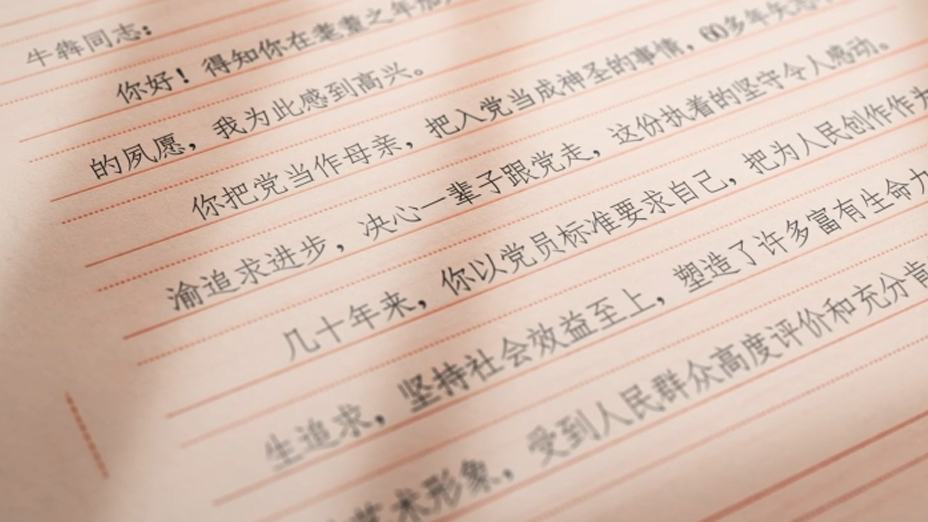 牛犇同志：
你好！得知你在耄耋之年加
的夙愿，我为此感到高兴。
你把党当作母亲，把入党当成神圣的事情，60多年矢志
渝追求进步，决心一辈子跟党走，这份执着的坚守令人感动。
几十年来，你以党员标准要求自己，把为人民创作作为
生追求，坚持社会效益至上，塑造了许多富有生命力
艺术形象，受到人民群众高度评价和充分肯